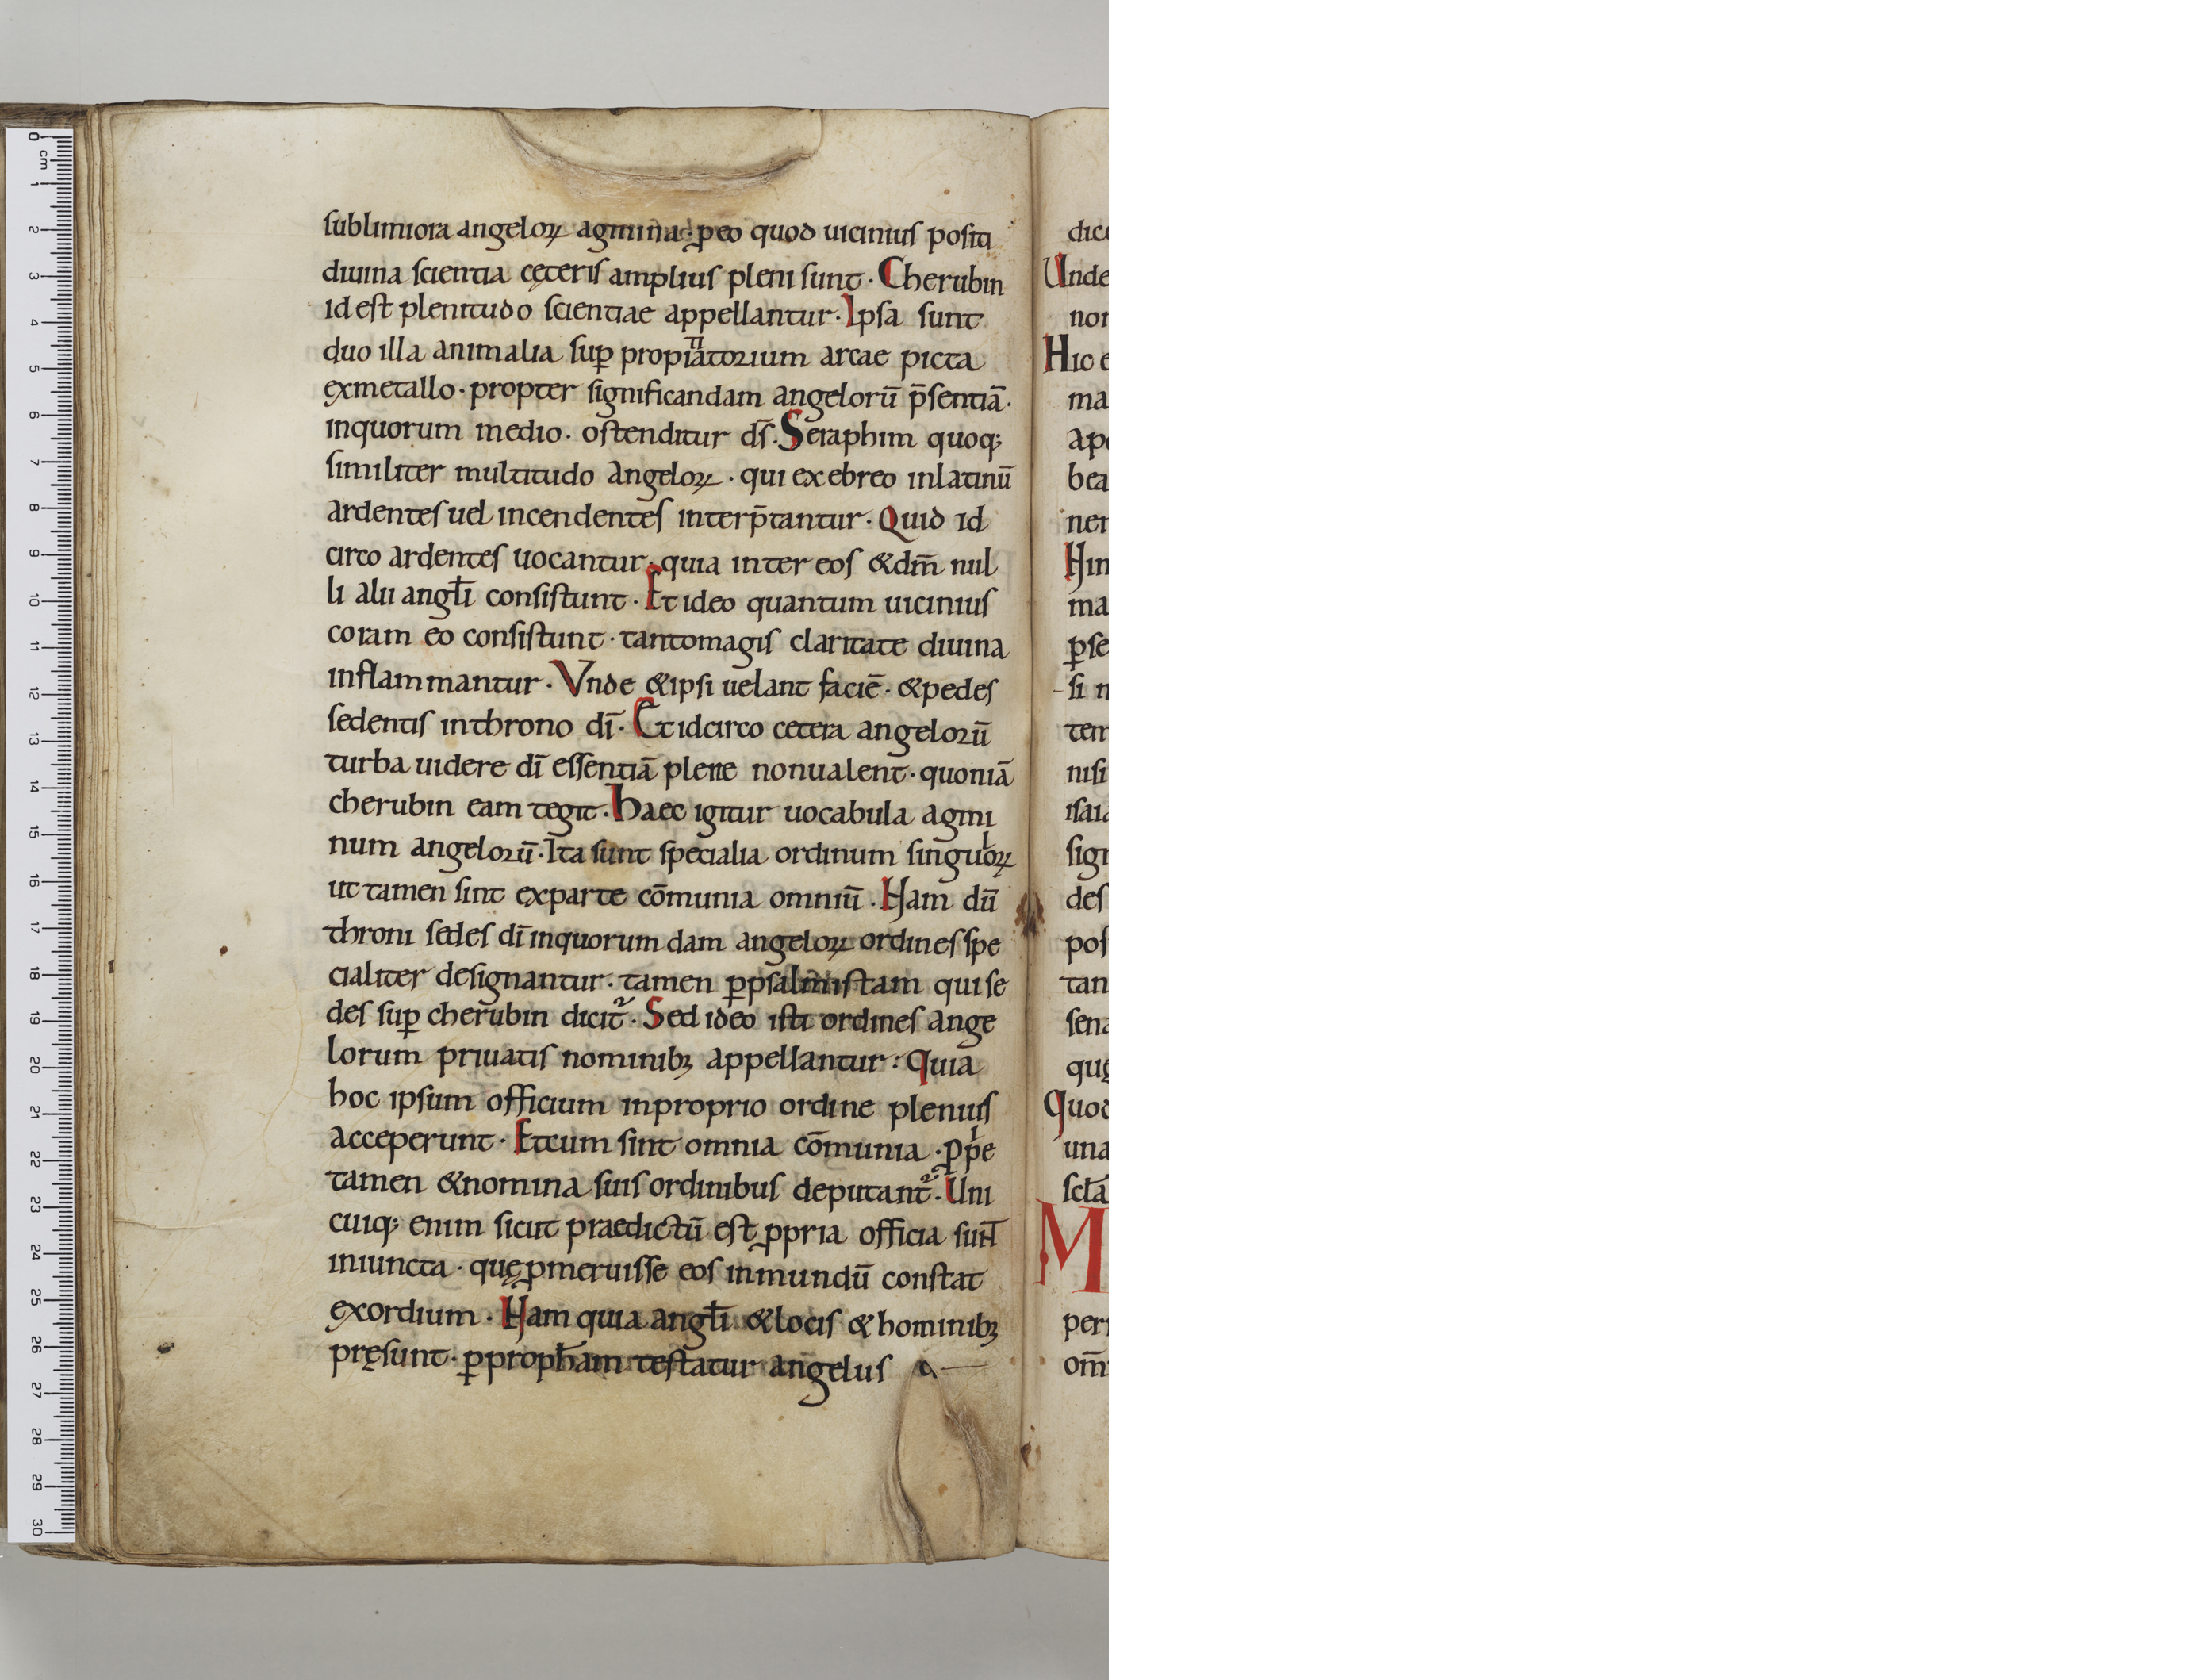 sublimiora angeloꝝ agmina· ꝓeo quod uicinius positi
diuina scientia cęteris amplius pleni sunt· Cherubin
id est plenitudo scientiae appellantur· Ipsa sunt
duo illa animalia suꝑ propitiatorium arcae picta
exmetallo· propter significandam angelorū p̄sentiā·
inquorum medio· ostenditur ds̄· Seraphim quoq;
similiter multitudo angeloꝝ· qui ex ebreo inlatinū
ardentes uel incendentes interp̄tantur· Quid id
circo ardentes uocantur· quia inter eos &dm̄ nul
li alii angłi consistunt· Et ideo quantum uicinius
coram eo consistunt· tantomagis claritate diuina
inflammantur· Vnde &ipsi uelant faciē· &pedes
sedentis inthrono dī· Et idcirco cetera angelorū
turba uidere dī essentiā plene nonualent· quoniā
cherubin eam tegit· Haec igitur uocabula agmi
num angelorū· Ita sunt specialia ordinum singuloꝝ
ut tamen sint exparte cōmunia omniū· Nam dū
throni sedes dī inquorum dam angeloꝝ ordines spe
cialiter designantur· tamen ꝑpsalmistam qui se
des suꝑ cherubin dicit᷑· Sed ideo isti ordines ange
lorum priuatis nominibꝫ appellantur· Quia
hoc ipsum officium inproprio ordine plenius
acceperunt· Etcum sint omnia cōmunia· ꝓpͥe
tamen &nomina suis ordinibus deputant᷑· Uni
cuiq; enim sicut praedictū est ꝓpria officia sunt
iniuncta· quę ꝓmeruisse eos inmundū constat
exordium· Nam quia angłi &locis &hominibꝫ
pręsunt· ꝑpropħam testatur angelus
dic
Unde
non
Hic e
ma
apo
bea
ner
Hin
ma
ꝑse
si n
tem
nisi
isaia
sign
des
pos
tan
sena
quę
Quod
una
scła
M
per
om̄